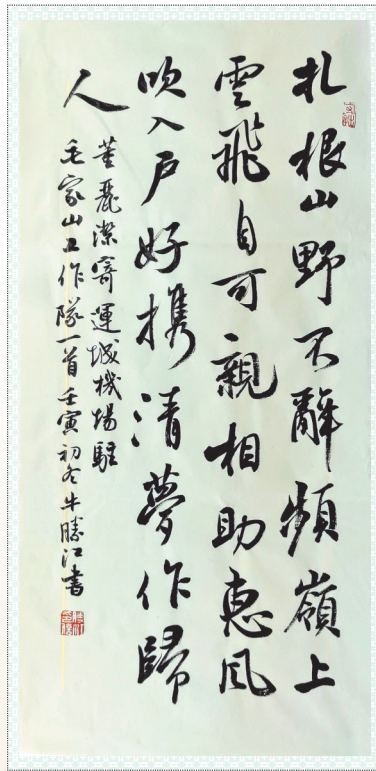 扎根山野不辭頻嶺上
雲飛自可親相助惠風
吹入戶好攜清夢作歸
人
董麗潔寄運城機場駐
毛家山工作隊一首壬寅初冬牛勝江書